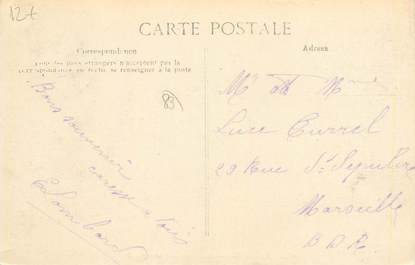 12€
CARTE POSTALE
Correspondance
Tous les pays étrangers n'acceptent pas la
correspondance au recto, se renseigner à la poste
Adresse
83
Bons souvenirs
caresse a tous
Lombard
Mr et Mme
Luce Currel
29 Rue St
Marseille
B.D.R.